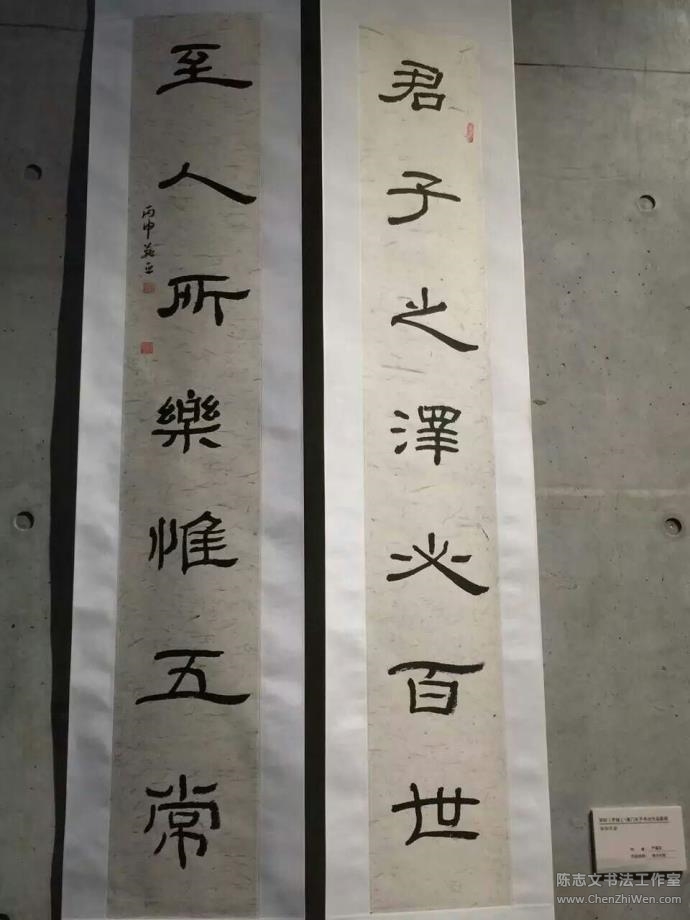 君子之澤必百世
至人所樂惟五常
丙申
陈志文书法工作室
www.ChenZhiWen.cn